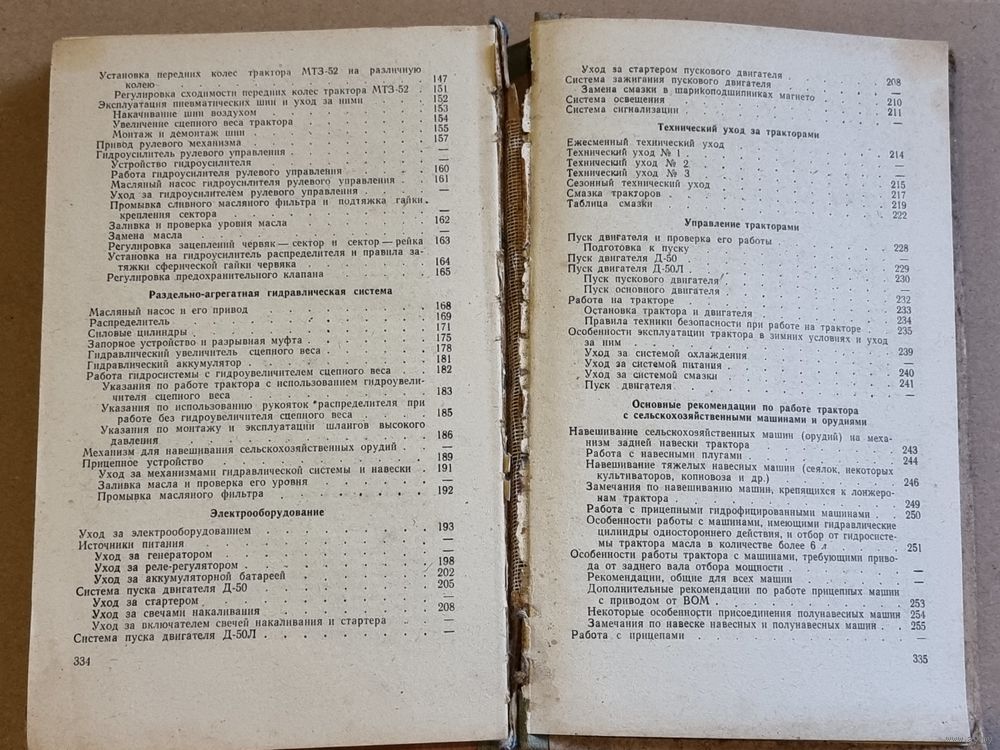 Установка передних колес трактора МТЗ-52 на различную
колею . . . . . . . . . . 147
Регулировка сходимости передних колес трактора МТЗ-52 . 151
Эксплуатация пневматических шин и уход за ними . . . 152
Накачивание шин воздухом . . . . . . . 153
Увеличение сцепного веса трактора . . . . . 154
Монтаж и демонтаж шин . . . . . . . 155
Привод рулевого механизма . . . . . . . 157
Гидроусилитель рулевого управления . . . . . —
Устройство гидроусилителя . . . . . . —
Работа гидроусилителя рулевого управления . . . 160
Масляный насос гидроусилителя рулевого управления . . 161
Уход за гидроусилителем рулевого управления . . . —
Промывка сливного масляного фильтра и подтяжка гайки
крепления сектора . . . . . . . —
Заливка и проверка уровня масла . . . . . 162
Замена масла . . . . . . . . —
Регулировка зацеплений червяк — сектор и сектор — рейка 163
Установка на гидроусилитель распределителя и правила за-
тяжки сферической гайки червяка . . . . . 164
Регулировка предохранительного клапана . . . . 165
Раздельно-агрегатная гидравлическая система
Масляный насос и его привод . . . . . . 168
Распределитель . . . . . . . . 169
Силовые цилиндры . . . . . . . . 171
Запорное устройство и разрывная муфта . . . . 175
Гидравлический увеличитель сцепного веса . . . . 178
Гидравлический аккумулятор . . . . . . 181
Работа гидросистемы с гидроувеличителем сцепного веса . 182
Указания по работе трактора с использованием гидроувели-
чителя сцепного веса . . . . . . . 183
Указания по использованию рукояток распределителя при
работе без гидроувеличителя сцепного веса . . . 185
Указания по монтажу и эксплуатации шлангов высокого
давления . . . . . . . . 186
Механизм для навешивания сельскохозяйственных орудий . —
Прицепное устройство . . . . . . . 189
Уход за механизмами гидравлической системы и навески . 191
Заливка масла и проверка его уровня . . . . —
Промывка масляного фильтра . . . . . . 192
Электрооборудование
Уход за электрооборудованием . . . . . . 193
Источники питания . . . . . . . . —
Уход за генератором . . . . . . . —
Уход за реле-регулятором . . . . . . 198
Уход за аккумуляторной батареей . . . . . 202
Система пуска двигателя Д-50 . . . . . . 205
Уход за стартером . . . . . . . —
Уход за свечами накаливания . . . . . . 208
Уход за включателем свечей накаливания и стартера . . —
Система пуска двигателя Д-50Л . . . . . . —
334
Уход за стартером пускового двигателя . . . .
Система зажигания пускового двигателя . . . . 208
Замена смазки в шарикоподшипниках магнето . . . —
Система освещения . . . . . . . . 210
Система сигнализации . . . . . . . 211
—
Технический уход за тракторами
Ежесменный технический уход
Технический уход № 1 . . . . . . . 214
Технический уход № 2 . . . . . . . —
Технический уход № 3 . . . . . . . —
Сезонный технический уход . . . . . . 215
Смазка тракторов . . . . . . . . 217
Таблица смазки . . . . . . . . 219
222
Управление тракторами
Пуск двигателя и проверка его работы
Подготовка к пуску . . . . . . . 228
Пуск двигателя Д-50 . . . . . . . —
Пуск двигателя Д-50Л . . . . . . . 229
Пуск пускового двигателя . . . . . . 230
Пуск основного двигателя . . . . . . —
Работа на тракторе . . . . . . . 232
Остановка трактора и двигателя . . . . . 233
Правила техники безопасности при работе на тракторе . 234
Особенности эксплуатации трактора в зимних условиях и уход 235
за ним . . . . . . . . .
Уход за системой охлаждения . . . . . 239
Уход за системой питания . . . . . . —
Уход за системой смазки . . . . . . 240
Пуск двигателя . . . . . . . . 241
—
Основные рекомендации по работе трактора
с сельскохозяйственными машинами и орудиями
Навешивание сельскохозяйственных машин (орудий) на меха-
низм задней навески трактора . . . . .
Работа с навесными плугами . . . . . . 243
Навешивание тяжелых навесных машин (сеялок, некоторых 244
культиваторов, копновоза и др.) . . . . .
Замечания по навешиванию машин, крепящихся к лонжеро- 246
нам трактора . . . . . . . .
Работа с прицепными гидрофицированными машинами . . 249
Особенности работы с машинами, имеющими гидравлические 250
цилиндры одностороннего действия, и отбор от гидросисте-
мы трактора масла в количестве более 6 л . . .
Особенности работы трактора с машинами, требующими приво- 251
да от заднего вала отбора мощности . . . .
Рекомендации, общие для всех машин . . . . —
Дополнительные рекомендации по работе прицепных машин —
с приводом от ВОМ . . . . . . .
Некоторые особенности присоединения полунавесных машин 253
Замечания по навеске навесных и полунавесных машин . . 254
Работа с прицепами . . . . . . . 255
—
335